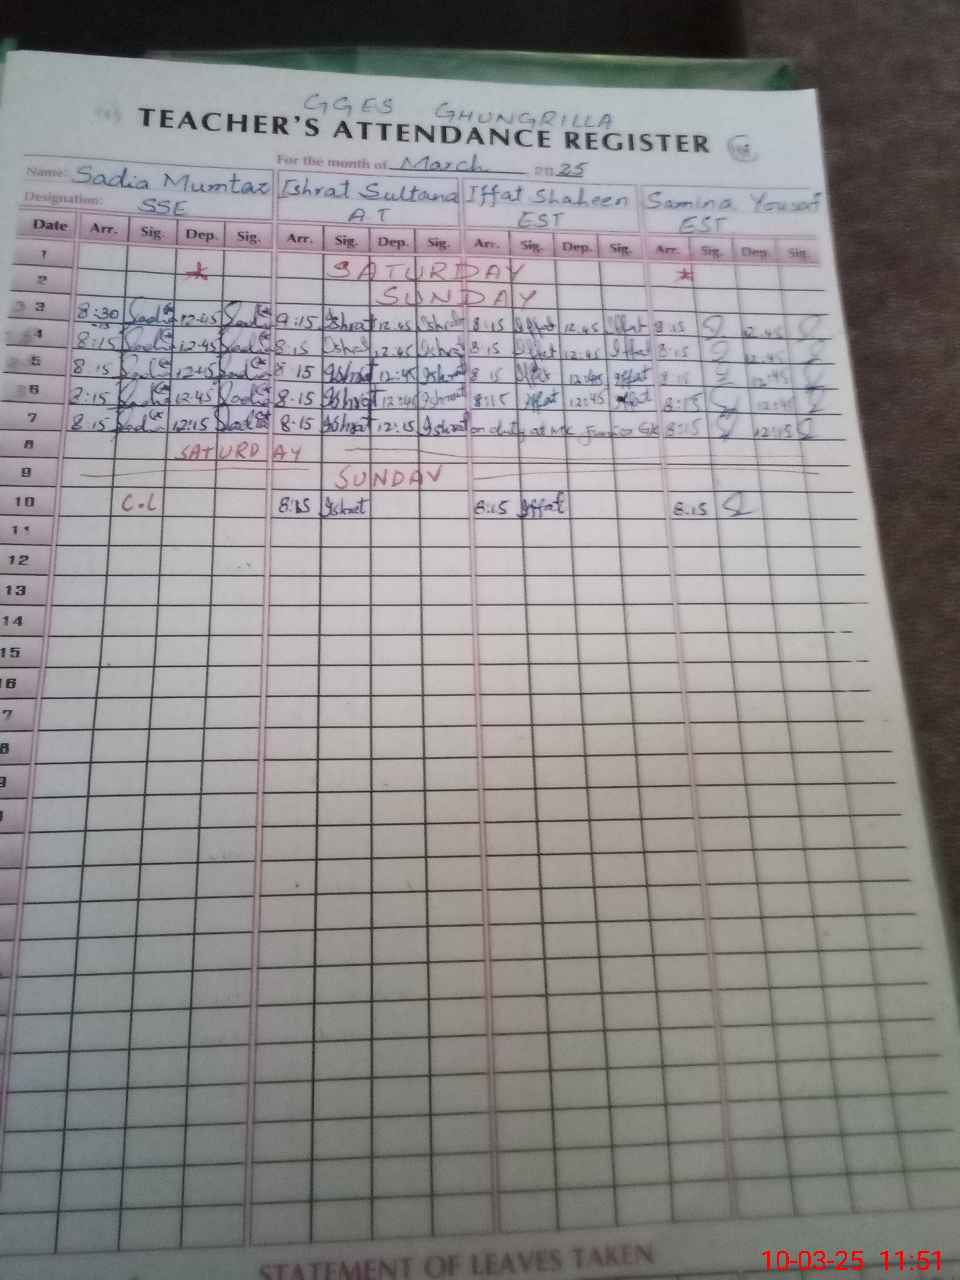 GGES GHUNGRILLA
TEACHER'S ATTENDANCE REGISTER
For the month of March 20 25
Name: Sadia Mumtaz Ishrat Sultana Iffat Shaheen Samina Yousaf
Designation: SSE A.T EST EST
Date Arr. Sig. Dep. Sig. Arr. Sig. Dep. Sig. Arr. Sig. Dep. Sig. Arr. Sig. Dep. Sig.
1 SATURDAY
2 SUNDAY
3 8:30 Sadia 12:45 Sadia 9:15 Ishrat 12:45 Ishrat 8:15 Iffat 12:45 Iffat 8:15 12:45
4 8:15 Sadia 12:45 Sadia 8:15 Ishrat 12:45 Ishrat 8:15 Iffat 12:45 Iffat 8:15 12:45
5 8:15 Sadia 12:45 Sadia 8:15 Ishrat 12:45 Ishrat 8:15 Iffat 12:45 Iffat 8:15 12:45
6 8:15 Sadia 12:45 Sadia 8:15 Ishrat 12:45 Ishrat 8:15 Iffat 12:45 Iffat 8:15 12:45
7 8:15 Sadia 12:15 Sadia 8:15 Ishrat 12:15 Ishrat on duty at 8:15 12:15
8 SATURDAY
9 SUNDAY
10 C.L 8:15 Ishrat 8:15 Iffat 8:15
11
12
13
14
15
16
7
8
STATEMENT OF LEAVES TAKEN
10-03-25 11:51